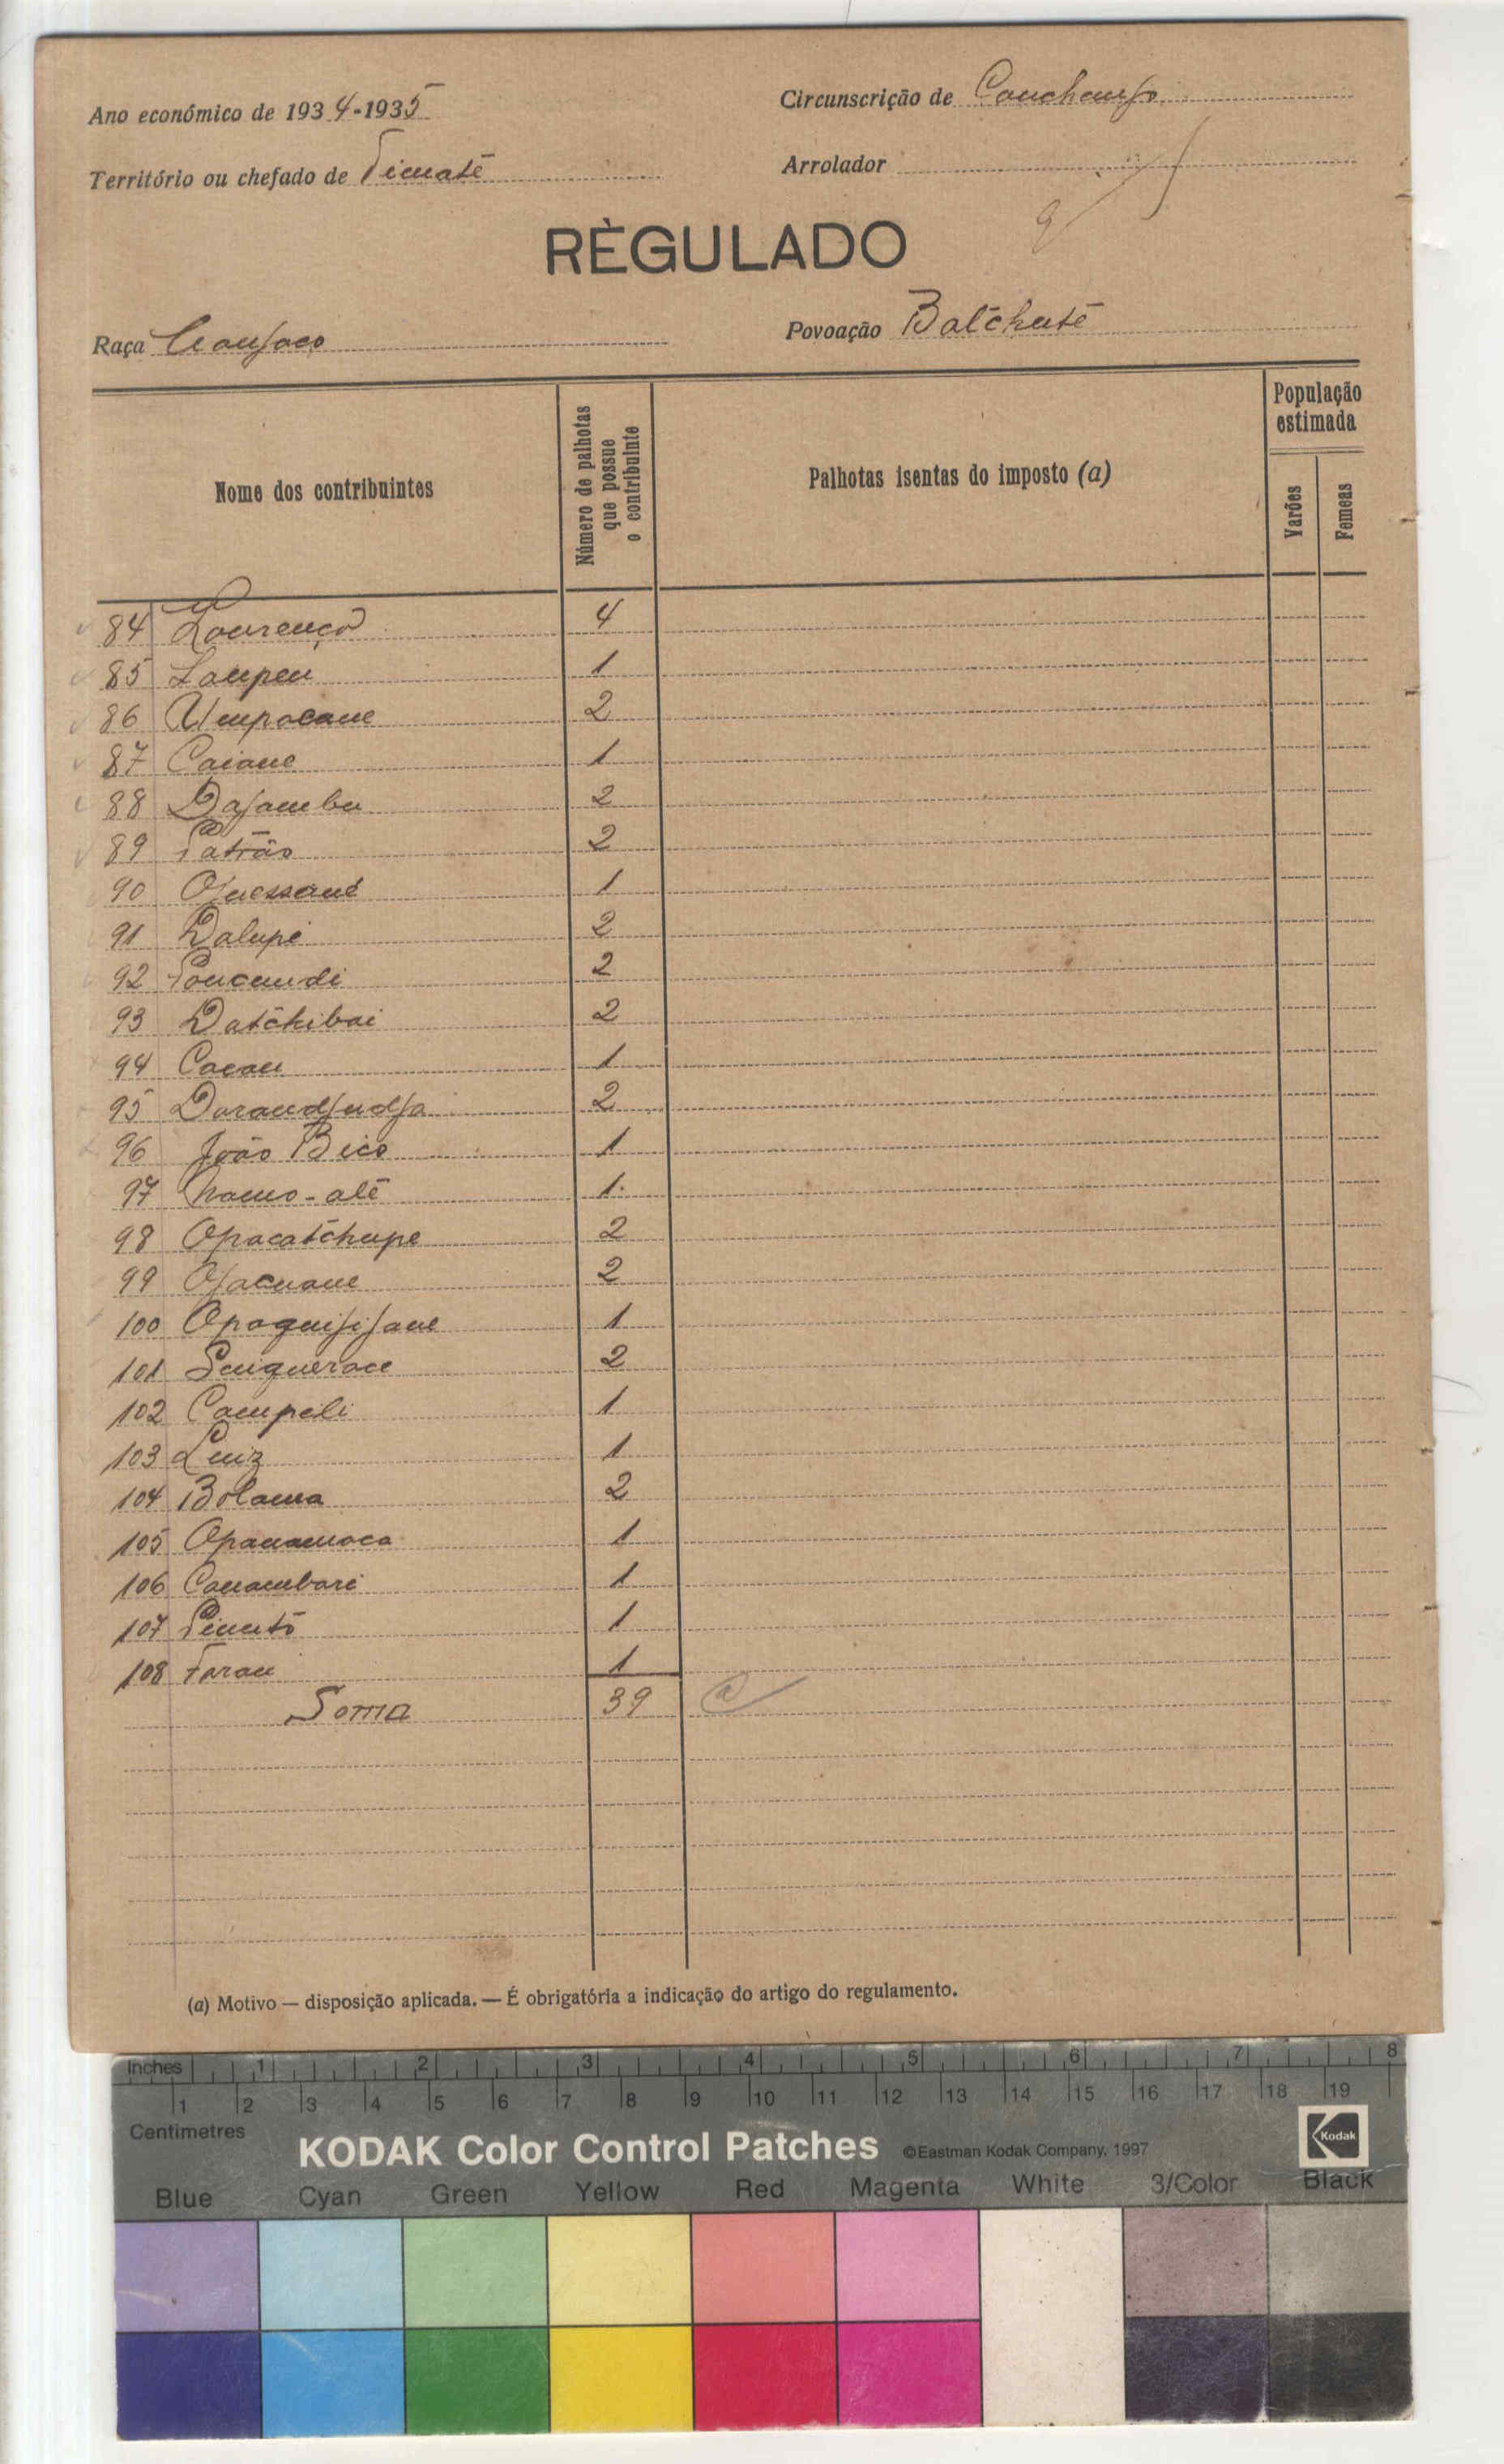 Ano económico de 1934-1935
Circunscrição de Canchungo
Território ou chefado de
Arrolador
RÈGULADO
Raça Manjaco
Povoação Batêhutê
Nome dos contribuintes
Número de palhotas que possue o contribuinte
Palhotas isentas do imposto (a)
População estimada
Varões
Femeas
84 Lourenço 4
85 Laupeu 1
86 Umpacane 2
87 Caiane 1
88 Dajambu 2
89 Patrão 2
90 Ojuessané 1
91 Dalupi 2
92 2
93 Datchibai 2
94 Cacau 1
95 Darandjudja 2
96 João Bico 1
97 1
98 Opacatchupe 2
99 Ojacuane 2
100 Opaquijijane 1
101 2
102 Campili 1
103 Luiz 1
104 Bolama 2
105 Opanamoca 1
106 Canambari 1
107 1
108 Farau 1
Soma 39
(a) Motivo — disposição aplicada. — É obrigatória a indicação do artigo do regulamento.
Inches 1 2 3 4 5 6 7 8
1 2 3 4 5 6 7 8 9 10 11 12 13 14 15 16 17 18 19
Centimetres
KODAK Color Control Patches ©Eastman Kodak Company, 1997 Kodak
Blue Cyan Green Yellow Red Magenta White 3/Color Black